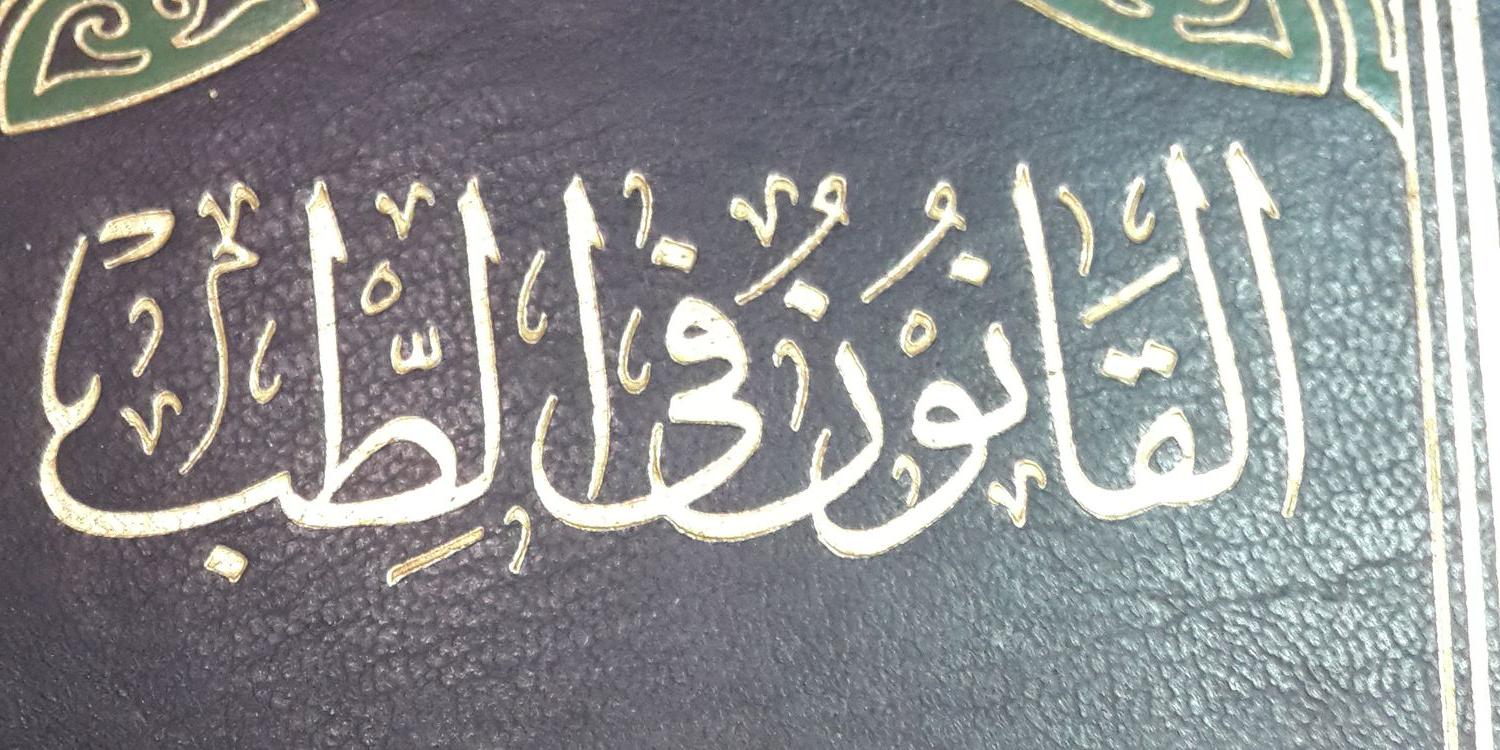 القَانُونُ فِي الطِّبّ